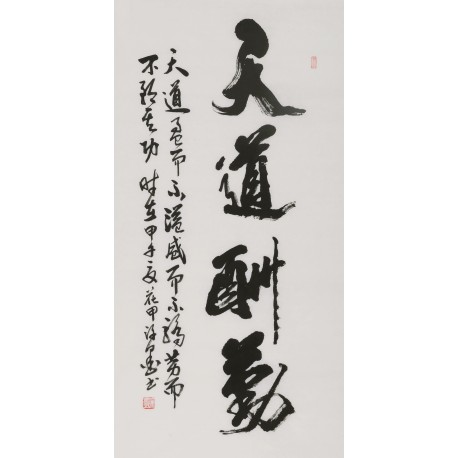 天道酬勤
天道盈而不溢盛而不骄劳而
不矜其功 时在甲午夏花甲书